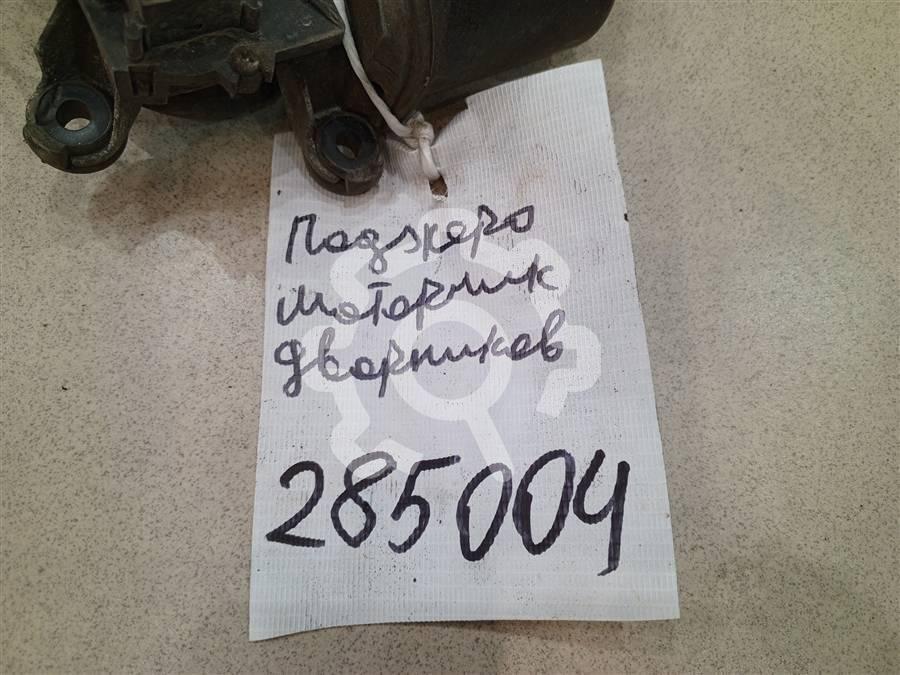 Паджеро
моторчик
дворников
285004